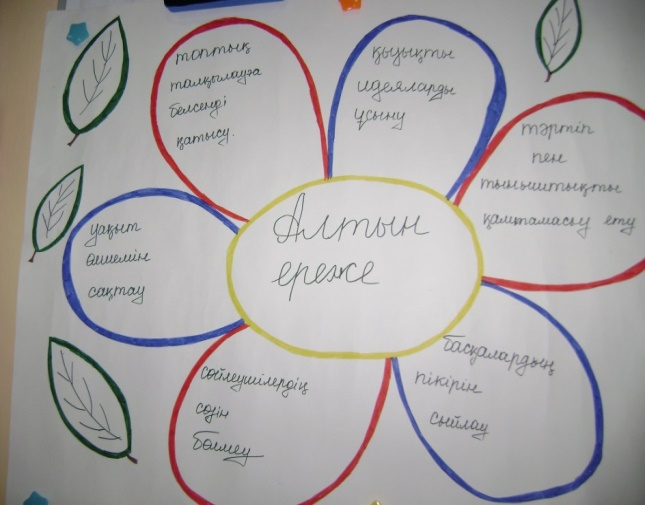 Алтын
ереже
топтық
талқылауға
белсенді
қатысу.
қызықты
идеяларды
ұсыну
тәртіп
пен
тыныштықты
қамтамасыз ету
басқалардың
пікірін
сыйлау
сөйлеушілердің
сөзін
бөлмеу
уақыт
өлшемін
сақтау